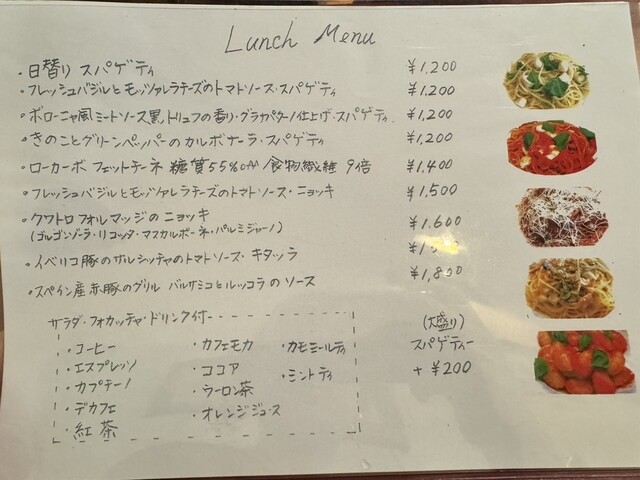 Lunch Menu
・日替り スパゲティ ¥1,200
・フレッシュバジルとモッツァレラチーズのトマトソース・スパゲティ ¥1,200
・ボローニャ風ミートソース黒トリュフの香り・グラナパダーノ仕上げ・スパゲティ ¥1,200
・きのことグリーンペッパーのカルボナーラ・スパゲティ ¥1,200
・ローカーボ フェットチーネ 糖質55%off/食物繊維 9倍 ¥1,400
・フレッシュバジルとモッツァレラチーズのトマトソース・ニョッキ ¥1,500
・クワトロフォルマッジのニョッキ ¥1,600
(ゴルゴンゾーラ・リコッタ・マスカルポーネ・パルミジャーノ)
・イベリコ豚のサルシッチャのトマトソース・キタッラ
・スペイン産赤豚のグリル バルサミコとルッコラのソース ¥1,800
サラダ・フォカッチャ・ドリンク付
・コーヒー
・エスプレッソ
・カプチーノ
・デカフェ
・紅茶
・カフェモカ
・ココア
・ウーロン茶
・オレンジジュース
・カモミールティ
・ミントティ
(大盛り)
スパゲティー
+¥200